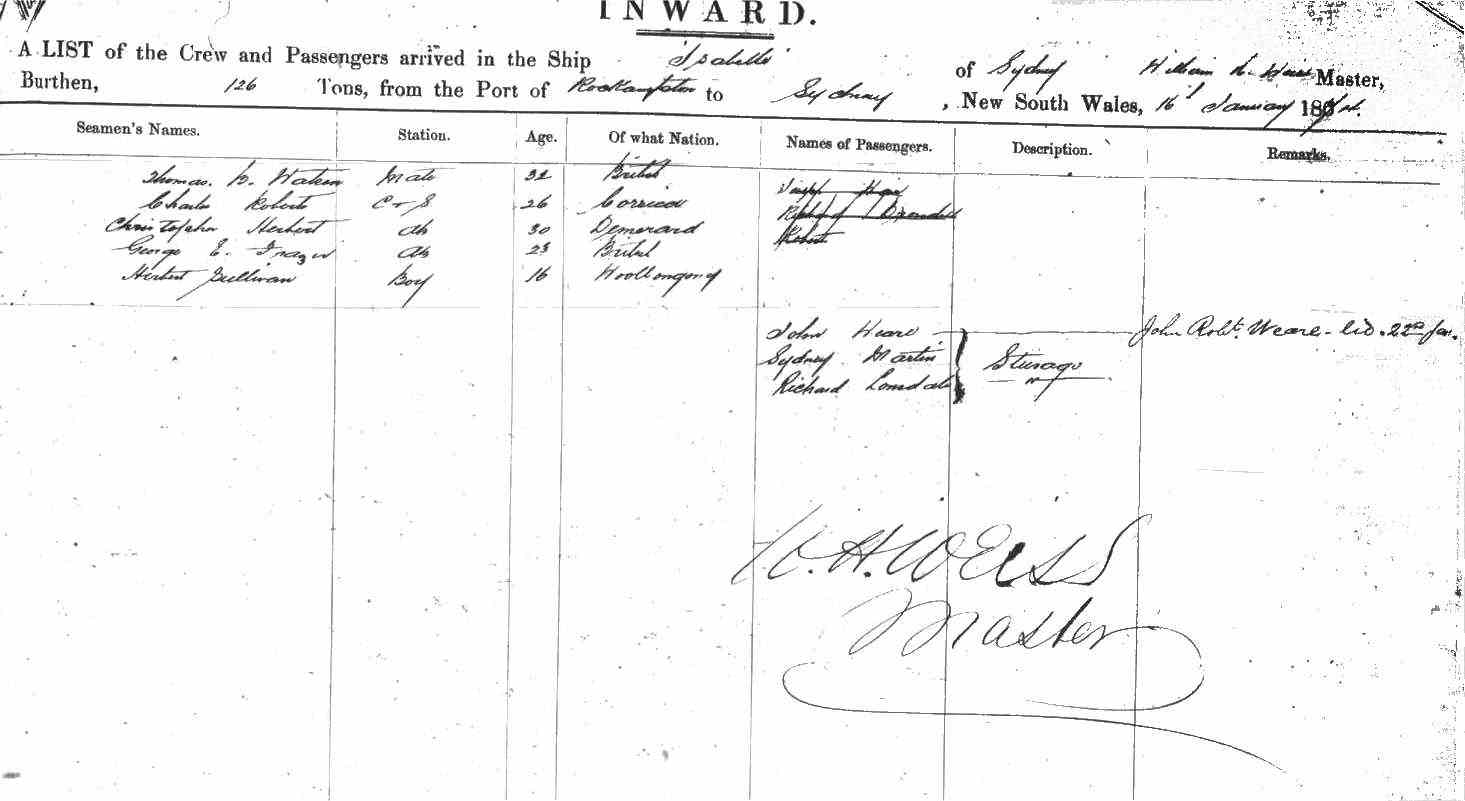 INWARD.
A LIST of the Crew and Passengers arrived in the Ship Isabella of Sydney William H. Weiss Master,
Burthen, 126 Tons, from the Port of Rockhampton to Sydney, New South Wales, 16 January 18
Seamen's Names. Station. Age. Of what Nation. Names of Passengers. Description. Remarks.
Thomas. Mate 32 British
Charles Roberts C & S 26 Corsica
Christopher Herbert ab 30 Demerard Robert
George E. Frazer ab 23 British
Herbert Sullivan Boy 16 Woollongong
John Weare John Robt. Weare - 22nd Jan.
Sydney Martin
Richard Lonsdale
W. H. Weiss
Master